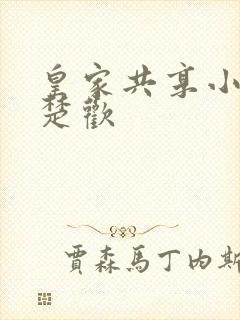 皇家共享小
楚歡
賈森馬丁內斯